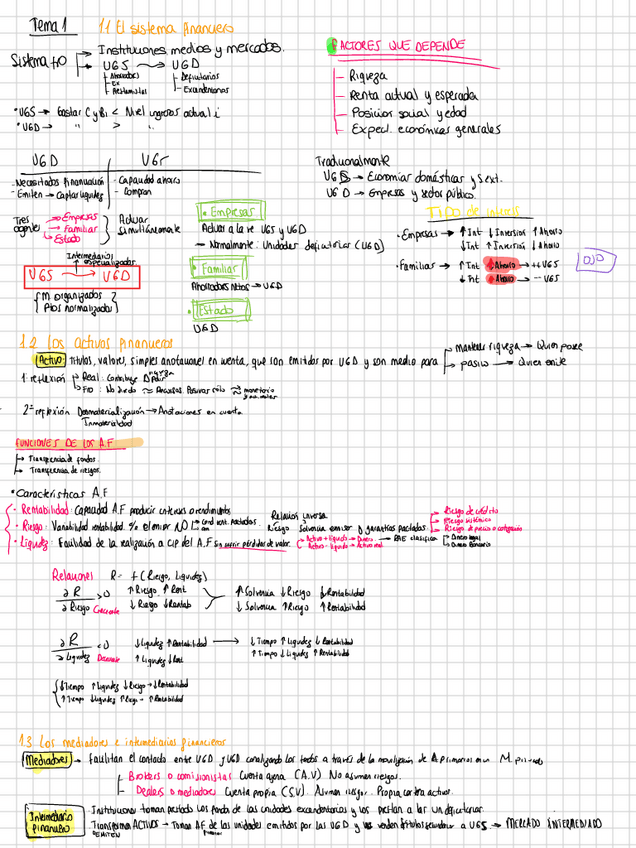 Tema 1
1.1 El sistema financiero
Sistema fro → Instituciones medios y mercados.
→ UGS → UGD
Ahorradores
Ex
Deficitarios
Excedentarios
FACTORES QUE DEPENDE
- Riqueza
- Renta actual y esperada
- Posición social y edad
- Expect. económicas generales
• UGS → Gastar C y Bi < Nivel ingresos actual i
• UGD → " > "
UGD UGS
- Necesitados financiación - Capacidad ahorro
- Emiten → Captar liquidez - Compran
Tradicionalmente
UGS → Economías domésticas y S.ext.
UGD → Empresas y sector público.
Tres → Empresas
→ Familiar
→ Estado
Actuar
simultáneamente
• Empresas
Actuar a la vez UGS y UGD
→ Normalmente: Unidades deficitarias (UGD)
• Familiar
Ahorradores Netos → UGD
• Estado
UGD
Intermediarios
especializados
UGS → UGD
M organizados
Ptos normalizados
TIPO de interés
• Empresas → ↑ Int ↓ Inversión ↑ Ahorro
↓ Int ↑ Inversión ↓ Ahorro
• Familias → ↑ Int Ahorro → ++ UGS
↓ Int Ahorro → -- UGS
OJO
1.2 Los activos financieros
Activo: Títulos, valores, simples anotaciones en cuenta, que son emitidos por UGD y son medio para
→ mantener riqueza → Quien posee
→ pasivo → Quien emite
1ª reflexión → Real: Contribuye
riqueza
país
→ Fro: No directo
2ª reflexión Desmaterialización → Anotaciones en cuenta
Inmaterialidad
FUNCIONES DE LOS A.F
→ Transferencia de fondos.
→ Transferencia de riesgos.
• Características A.F
• Rentabilidad: Capacidad A.F producir intereses o rendimientos
• Riesgo: Variabilidad rentabilidad. % el emisor NO Cond cont. pactadas.
Relación inversa
Riesgo Solvencia emisor y garantías pactadas
→ Riesgo de crédito
→ Riesgo sistémico
→ Riesgo de precio o cotización
• Liquidez: Facilidad de la realización a C/P del A.F sin sufrir pérdidas de valor.
Activo + líquido → Dinero → BCE clasifica → Dinero legal
Activo - líquido → Activo real
→ Dinero Bancario
Relaciones R = f (Riesgo, Liquidez)
∂R / ∂Riesgo > 0 Creciente
↑ Riesgo ↑ Rent
↓ Riesgo ↓ Rentab
↑ Solvencia ↓ Riesgo ↓ Rentabilidad
↓ Solvencia ↑ Riesgo ↑ Rentabilidad
∂R / ∂Liquidez < 0 Decreciente
↓ Liquidez ↑ Rentabilidad
↑ Liquidez ↓ Rent
→ ↓ Tiempo ↑ Liquidez ↓ Rentabilidad
↑ Tiempo ↓ Liquidez ↑ Rentabilidad
↓ Tiempo ↑ Liquidez ↓ Riesgo → ↓ Rentabilidad
↑ Tiempo ↓ Liquidez ↑ Riesgo → ↑ Rentabilidad
1.3 Los mediadores e intermediarios financieros
Mediadores → Facilitan el contacto entre UGD y UGD canalizando los fondos a través de la movilización de A primarios en un M. primario
Brokers o comisionistas Cuenta ajena (A.V) No asumen riesgos.
Dealers o mediadores Cuenta propia (S.V). Asumen riesgo. Propia cartera activos.
Intermediario financiero
· Instituciones toman prestado los fondos de las unidades excedentarias y los prestan a las un deficitarias.
· Transforman ACTIVOS → Toman AF de las unidades emitidos por las UGD y venden a UGS → MERCADO INTERMEDIADO
EMITEN